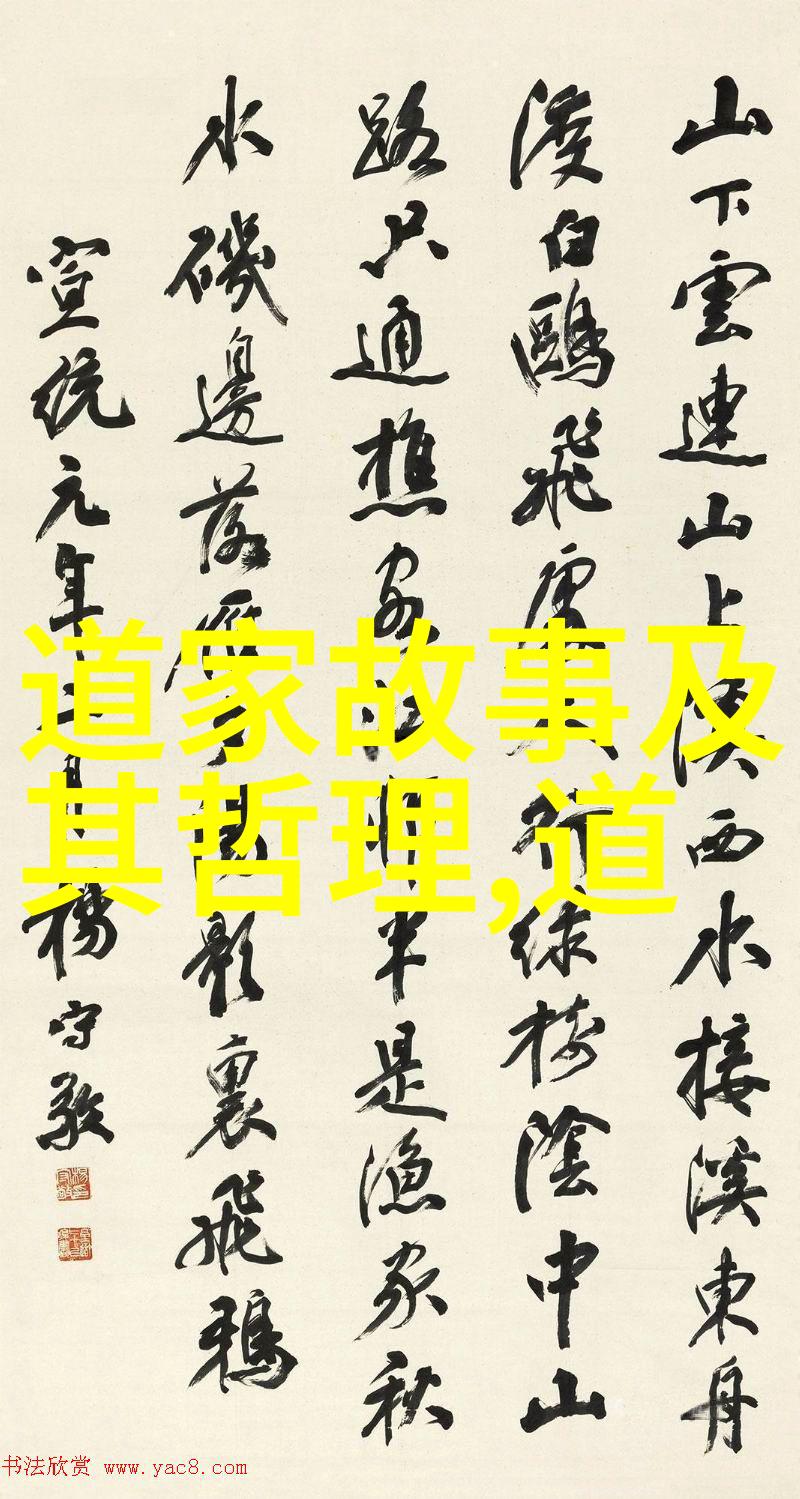 山下雲連山上溪西水接溪東舟
渡白鷗飛處人行綠樹陰中山
路只通樵客江村半是漁家秋
水磯邊落雁夕陽影裏飛鴉
宣統元年二月楊守敬
道家故事及
其哲理,道
书法欣赏 www.yac8.com